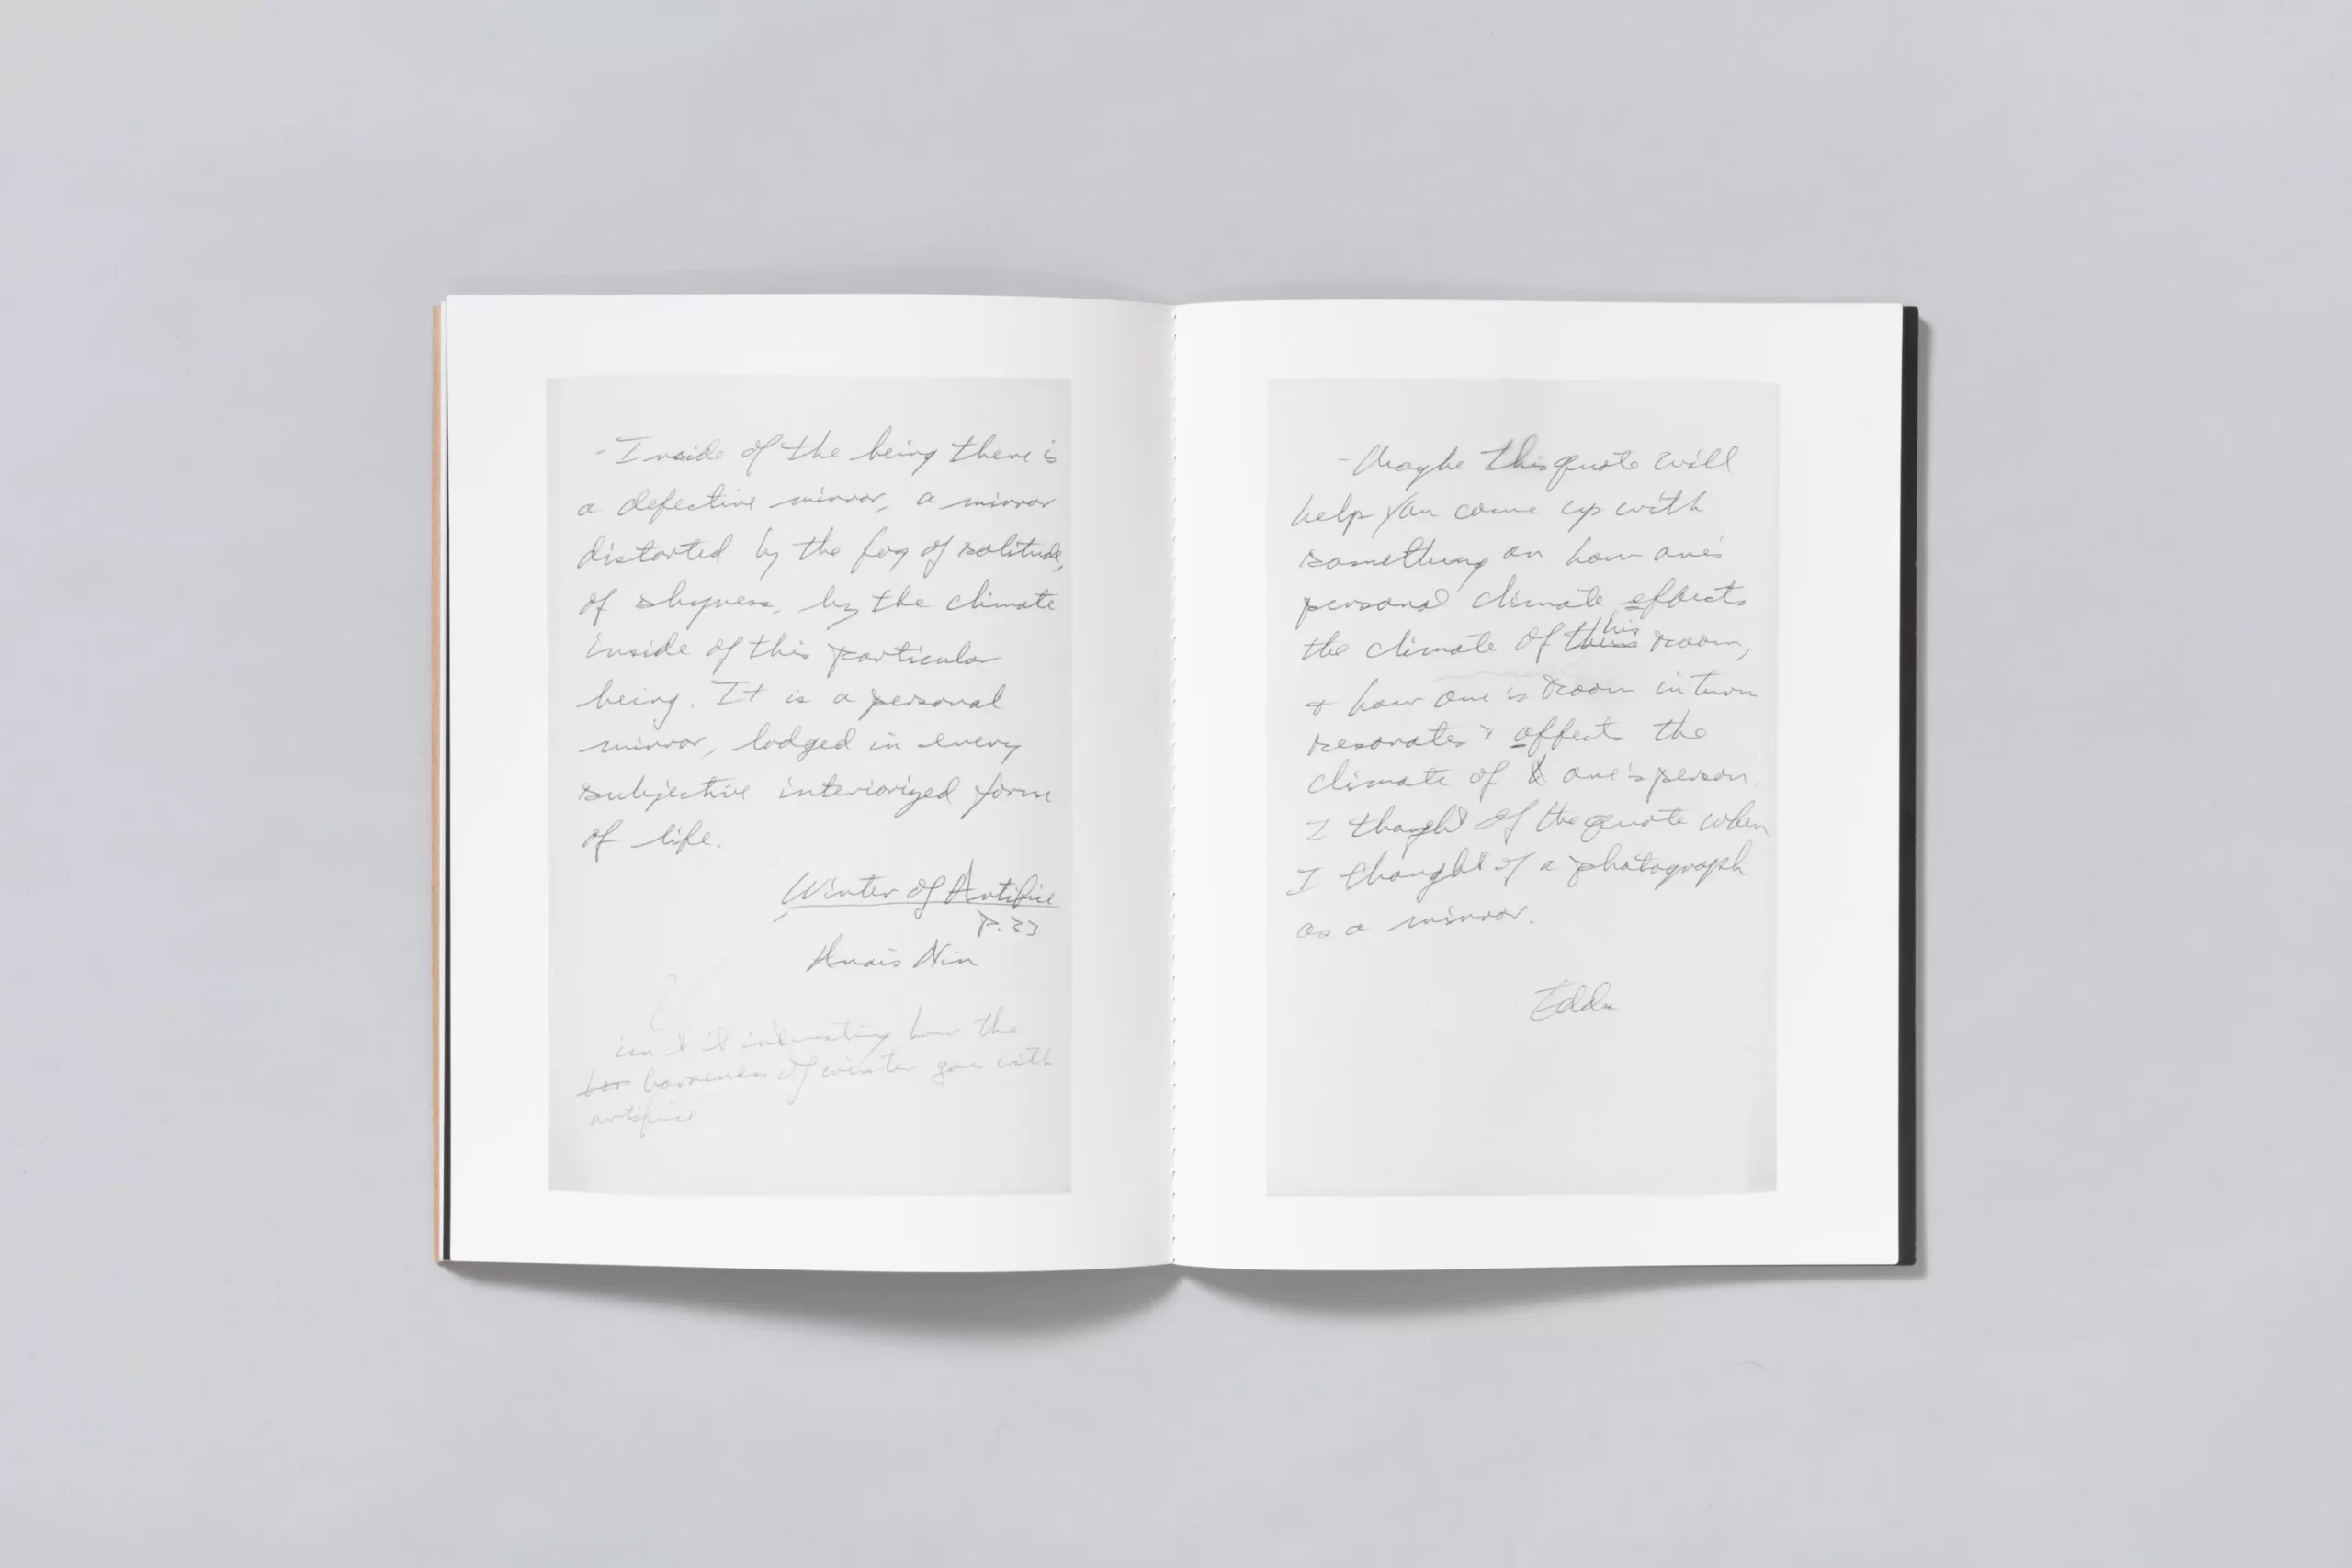 - Inside of the being there is
a defective mirror, a mirror
distorted by the fog of solitude,
of shyness, by the climate
inside of this particular
being. It is a personal
mirror, lodged in every
subjective interiorized form
of life.
Winter of Artifice
P. 23
Anais Nin
isn't it interesting how the
bar barreness of winter goes with
artifice
- Maybe this quote will
help you come up with
something on how one's
personal climate effects
the climate of his room,
& how one's room in turn
resonates & affects the
climate of one's person.
I thought of the quote when
I thought of a photograph
as a mirror.